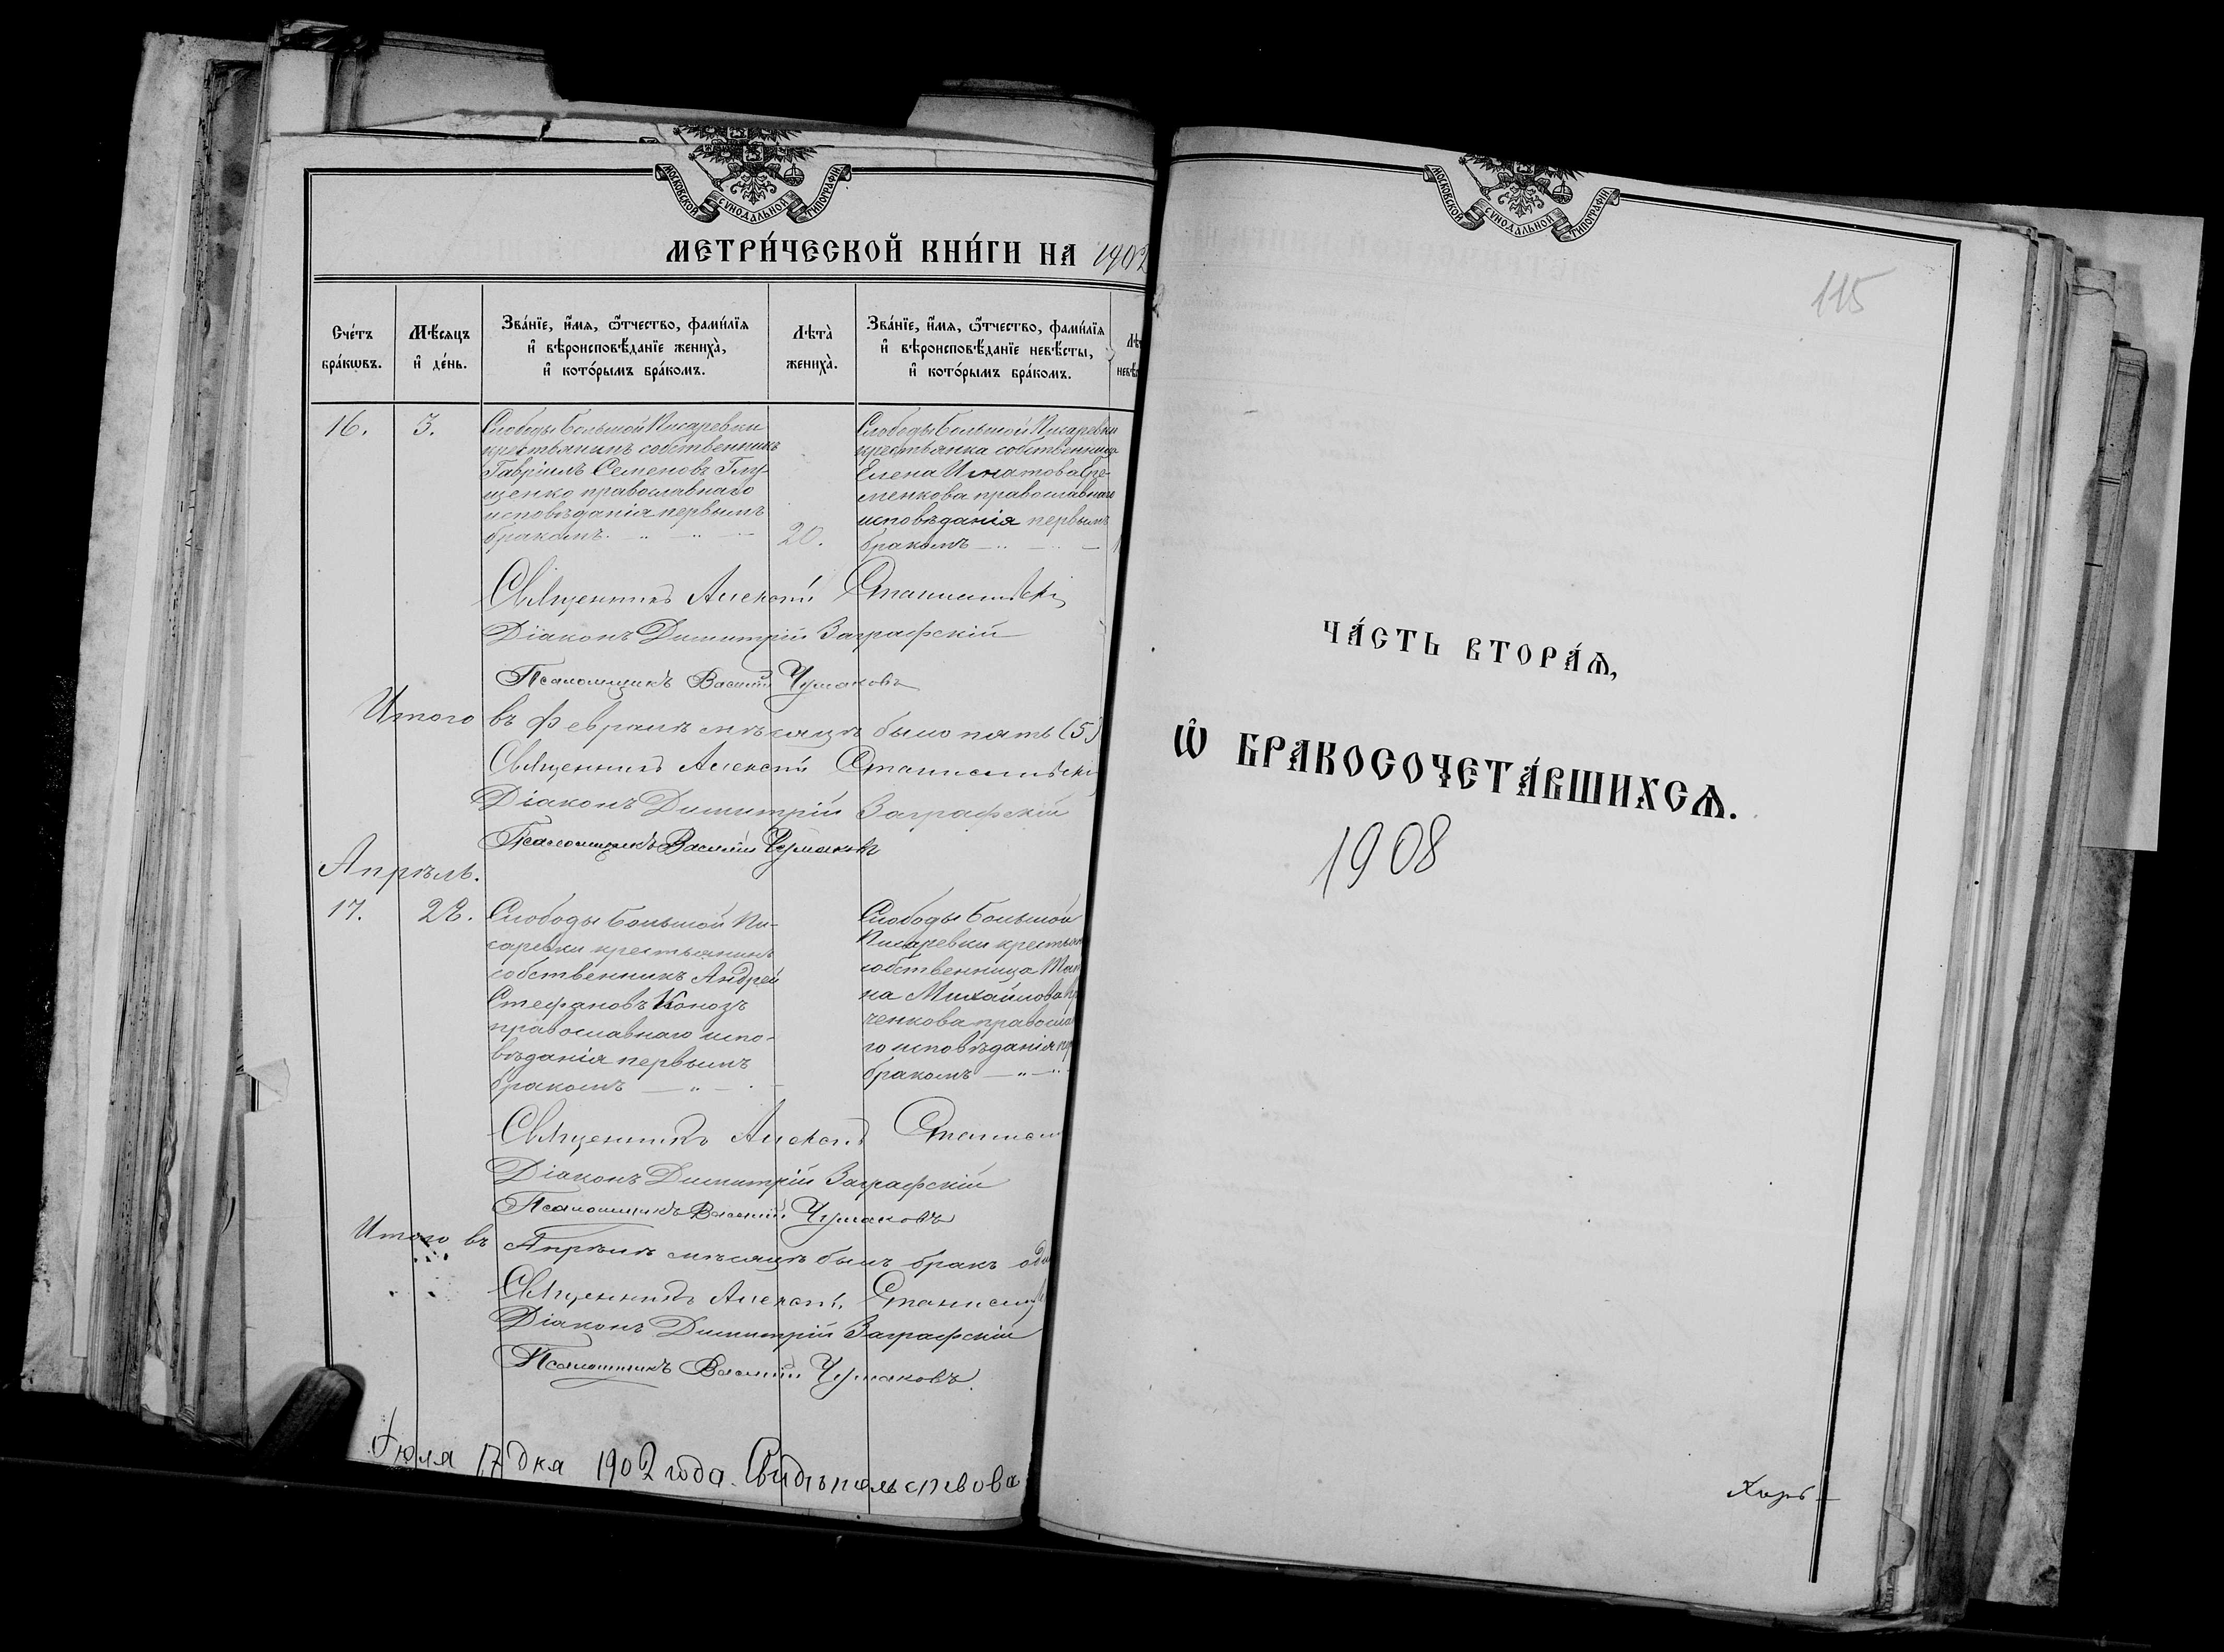 МОСКОВСКОЙ СѴНОДАЛЬНОЙ ТИПОГРАФІИ
МЕТРИ́ЧЕСКОЙ КНИ́ГИ НА 1902
Сче́тъ бра́кѡвъ.
Мѣ́сяцъ и҆ де́нь.
Зва́нїе, и҆́мѧ, ѻ҆́тчество, фамѝлїѧ и҆ вѣроисповѣ́данїе женихà, и҆ кото́рымъ бра́комъ.
Лѣтà женихà.
Зва́нїе, и҆́мѧ, ѻ҆́тчество, фамѝлїѧ и҆ вѣроисповѣ́данїе невѣ́сты, и҆ кото́рымъ бра́комъ.
16. 3.
Слободы Большой Писаревки
крестьянинъ собственникъ
Гавріилъ Семеновъ Глу-
щенко православнаго
исповѣданія первымъ
бракомъ.
20.
Слободы Большой Писаревки
крестьянка собственница
Елена Игнатова Ере-
менкова православнаго
исповѣданія первымъ
бракомъ
Священникъ Алексѣй
Діаконъ Димитрій Заграфскій
Псаломщикъ Василій Чумаковъ
Итого въ Февралѣ мѣсяцѣ было пять (5)
Священникъ Алексѣй
Діаконъ Димитрій Заграфскій
Псаломщикъ Василій Чумаковъ
Апрѣль.
17. 28.
Слободы Большой Пи-
саревки крестьянинъ
собственникъ Андрей
Стефановъ Конозъ
православнаго испо-
вѣданія первымъ
бракомъ
Слободы Большой
Писаревки крестьян
собственница
на Михайлова
ченкова правосла
го исповѣданія
бракомъ
Священникъ Алексѣй
Діаконъ Димитрій Заграфскій
Псаломщикъ Василій Чумаковъ
Итого въ Апрѣлѣ мѣсяцѣ былъ бракъ
Священникъ Алексѣй
Діаконъ Димитрій Заграфскій
Псаломщикъ Василій Чумаковъ
Іюля 17 дня 1902 года. Свидѣтельствова
МОСКОВСКОЙ СѴНОДАЛЬНОЙ ТИПОГРАФІИ
115
ЧА́СТЬ ВТОРА́Ѧ,
Ѡ҆ БРАКОСОЧЕТА́ВШИХСѦ.
1908